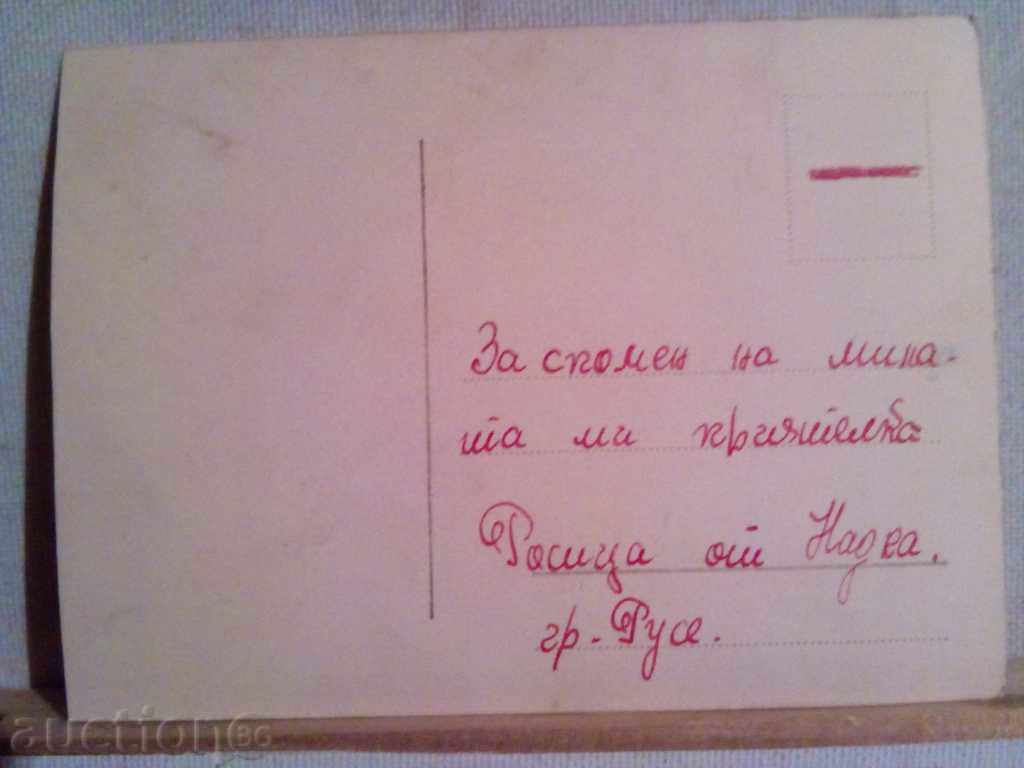 За спомен на мина-
та ми приятелка
Росица от Надка.
гр. Русе.
auction BG